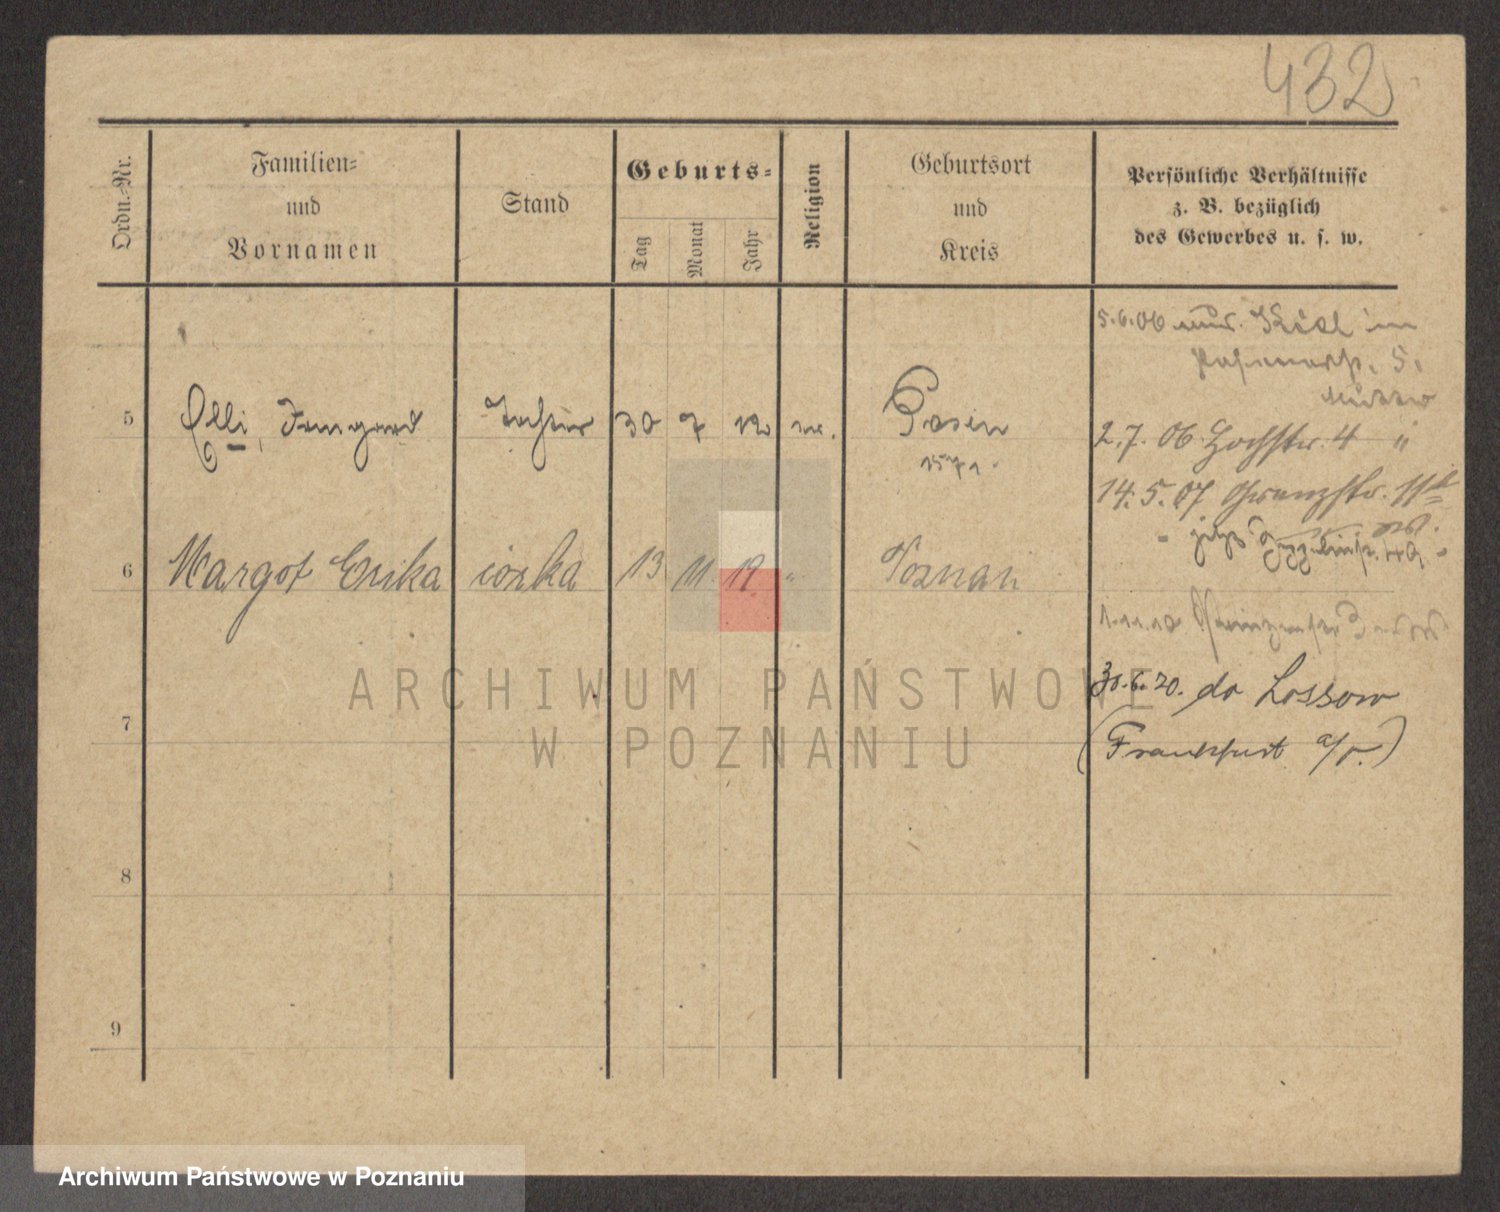 432
Ordn.-Nr.
Familien-
und
Vornamen
Stand
Geburts-
Tag
Monat
Jahr
Religion
Geburtsort
und
Kreis
Persönliche Verhältnisse
z. B. bezüglich
des Gewerbes u. s. w.
5.6.06
5.
5 Elli, Irmgard Tochter 30 7 12 Posen
1571.
2.7.06 Hochstr. 4 "
14.5.07 Grenzstr.
jetzt
6 Margot Erika córka 13 11. 19. " Poznań
1.11.10
30.6.20. do Lossow
(Frankfurt a/O.)
7
8
9
ARCHIWUM PAŃSTWOWE
W POZNANIU
Archiwum Państwowe w Poznaniu